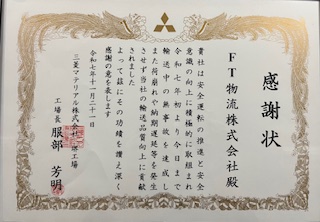 感謝状
FT物流株式会社殿
貴社は安全運転の推進と安全
意識の向上に積極的に取組まれ
令和七年初より今日まで
輸送中の無事故を達成し
また荷崩れや納期遅延等を発生
させず当社の輸送品質向上に貢献
されました
よって茲にその功績を讃え深く
感謝の意を表します
令和七年十一月二十一日
三菱マテリアル株式会社 堺工場
工場長 服部 芳明